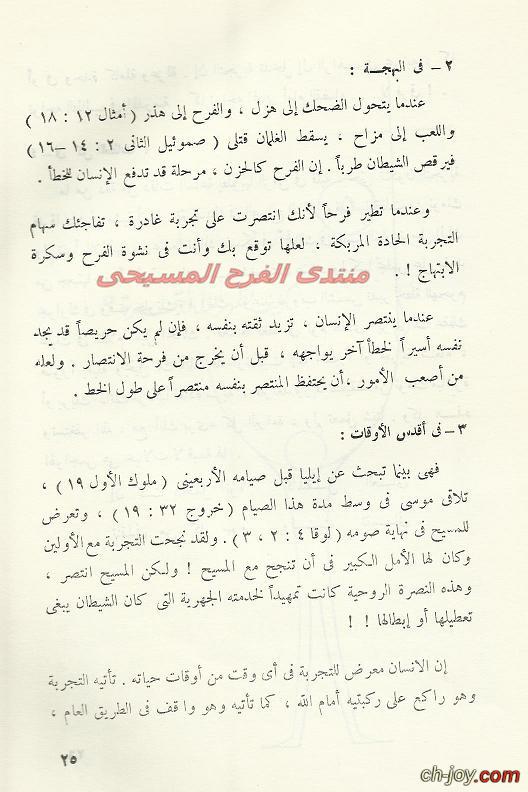 ٢ – فى البهجـــة :
عندما يتحول الضحك إلى هزل ، والفرح إلى هذر ( أمثال ١٢ : ١٨ )
واللعب إلى مزاح ، يسقط الغلمان قتلى ( صموئيل الثانى ٢ : ١٤ – ١٦ )
فيرقص الشيطان طرباً . إن الفرح كالحزن ، مرحلة قد تدفع الإنسان للخطأ .
وعندما تطير فرحاً لأنك انتصرت على تجربة غادرة ، تفاجئك سهام
التجربة الحادة المربكة . لعلها توقع بك وأنت فى نشوة الفرح وسكرة
الابتهاج ! .
منتدى الفرح المسيحى
عندما ينتصر الإنسان ، تزيد ثقته بنفسه ، فإن لم يكن حريصاً قد يجد
نفسه أسيراً لخطأ آخر يواجهه ، قبل أن يخرج من فرحة الانتصار . ولعله
من أصعب الأمور ، أن يحتفظ المنتصر بنفسه منتصراً على طول الخط .
٣ – فى أقدس الأوقات :
فهى بينما تبحث عن إيليا قبل صيامه الأربعينى ( ملوك الأول ١٩ ) ،
تلاقى موسى فى وسط مدة هذا الصيام ( خروج ٣٢ : ١٩ ) ، وتعرض
للمسيح فى نهاية صومه ( لوقا ٤ : ٢ ، ٣ ) . ولقد نجحت التجربة مع الأولين
وكان لها الأمل الكبير فى أن تنجح مع المسيح ! ولكن المسيح انتصر ،
وهذه النصرة الروحية كانت تمهيداً لخدمته الجهرية التى كان الشيطان يبغى
تعطيلها أو إبطالها ! !
إن الانسان معرض للتجربة فى أى وقت من أوقات حياته . تأتيه التجربة
وهو راكع على ركبتيه أمام الله ، كما تأتيه وهو واقف فى الطريق العام ،
٢٥
ch-joy.com